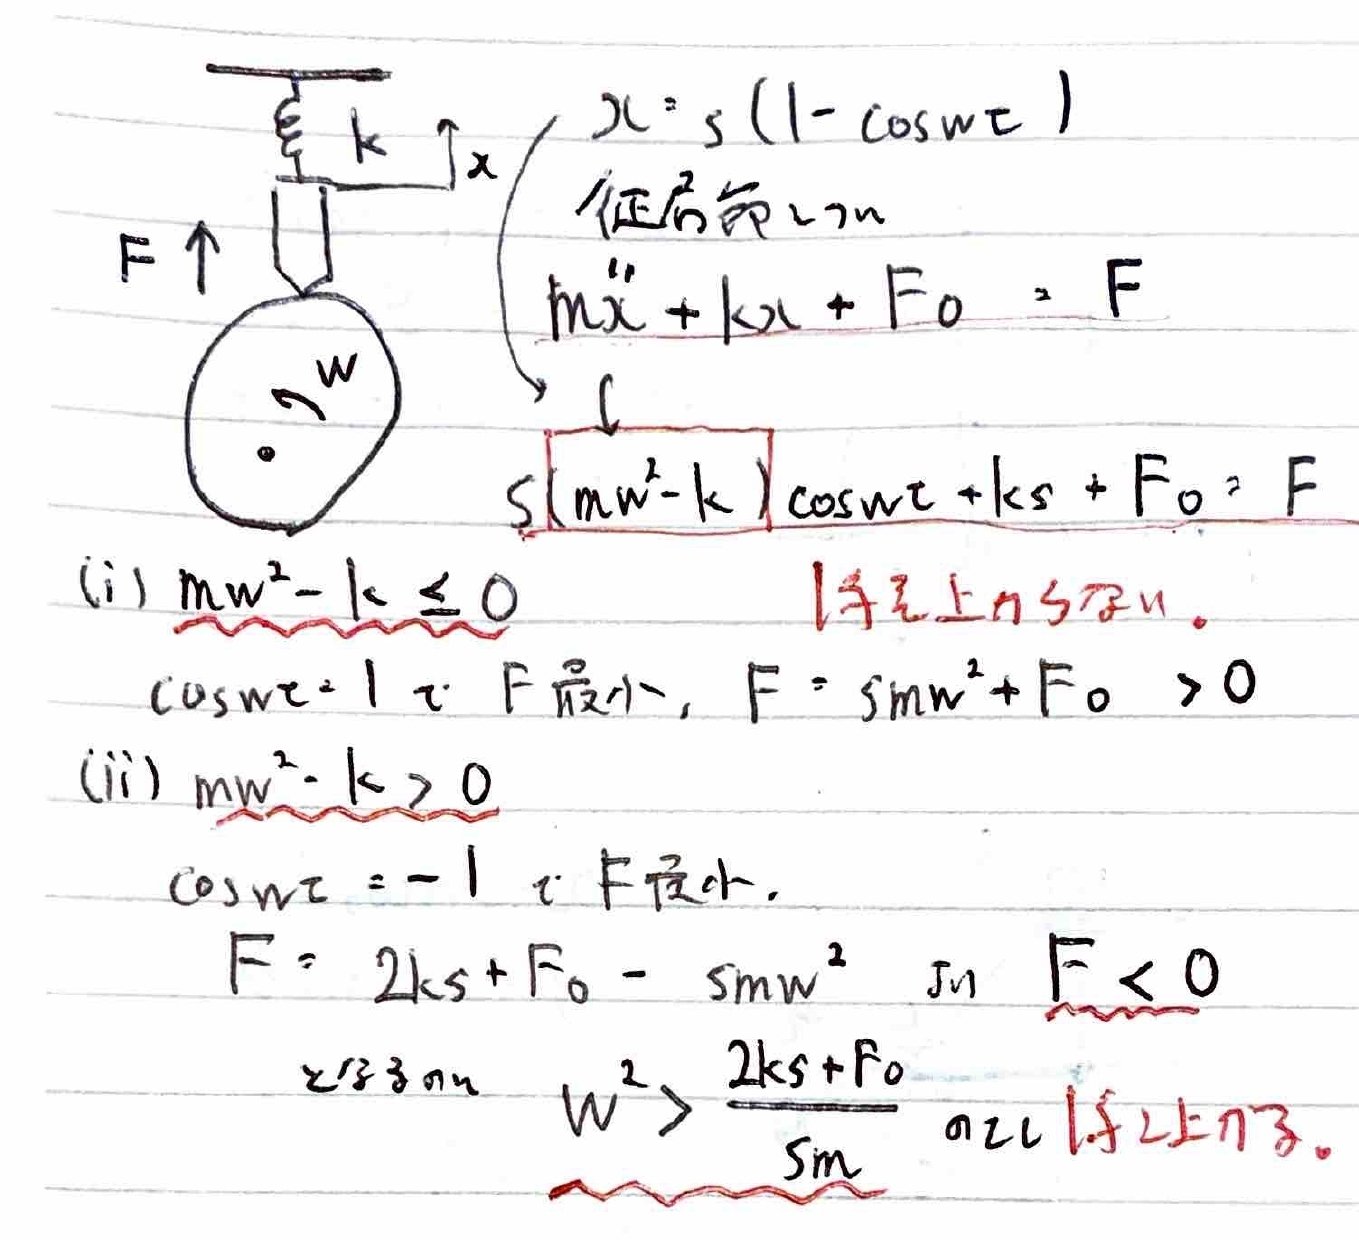 k
x
F
ω
x = s(1 - cosωt)
mẍ + kx + F₀ = F
s(mω² - k)cosωt + ks + F₀ = F
(i) mω² - k ≤ 0 浮き上がらない。
cosωt = 1 で F最小, F = smω² + F₀ > 0
(ii) mω² - k > 0
cosωt = -1 で F最小.
F = 2ks + F₀ - smω² より F < 0
となるのは ω² > (2ks + F₀)/sm のとき 浮き上がる。